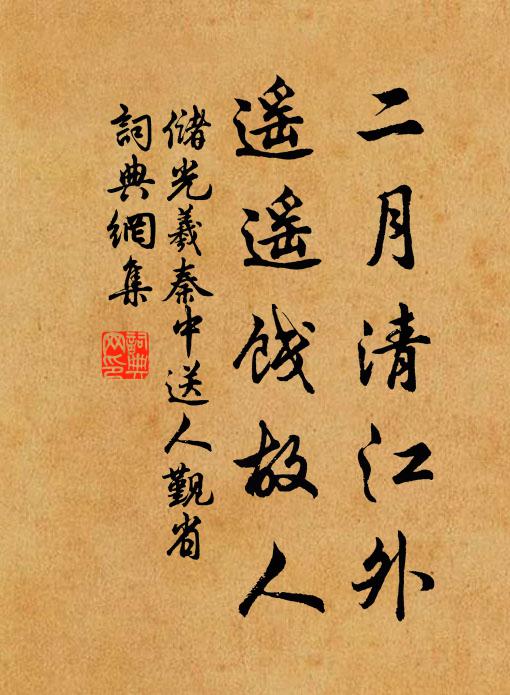 二月清江外
遥遥餞故人
儲光羲秦中送人覲省
詞典網集
詞典
网印